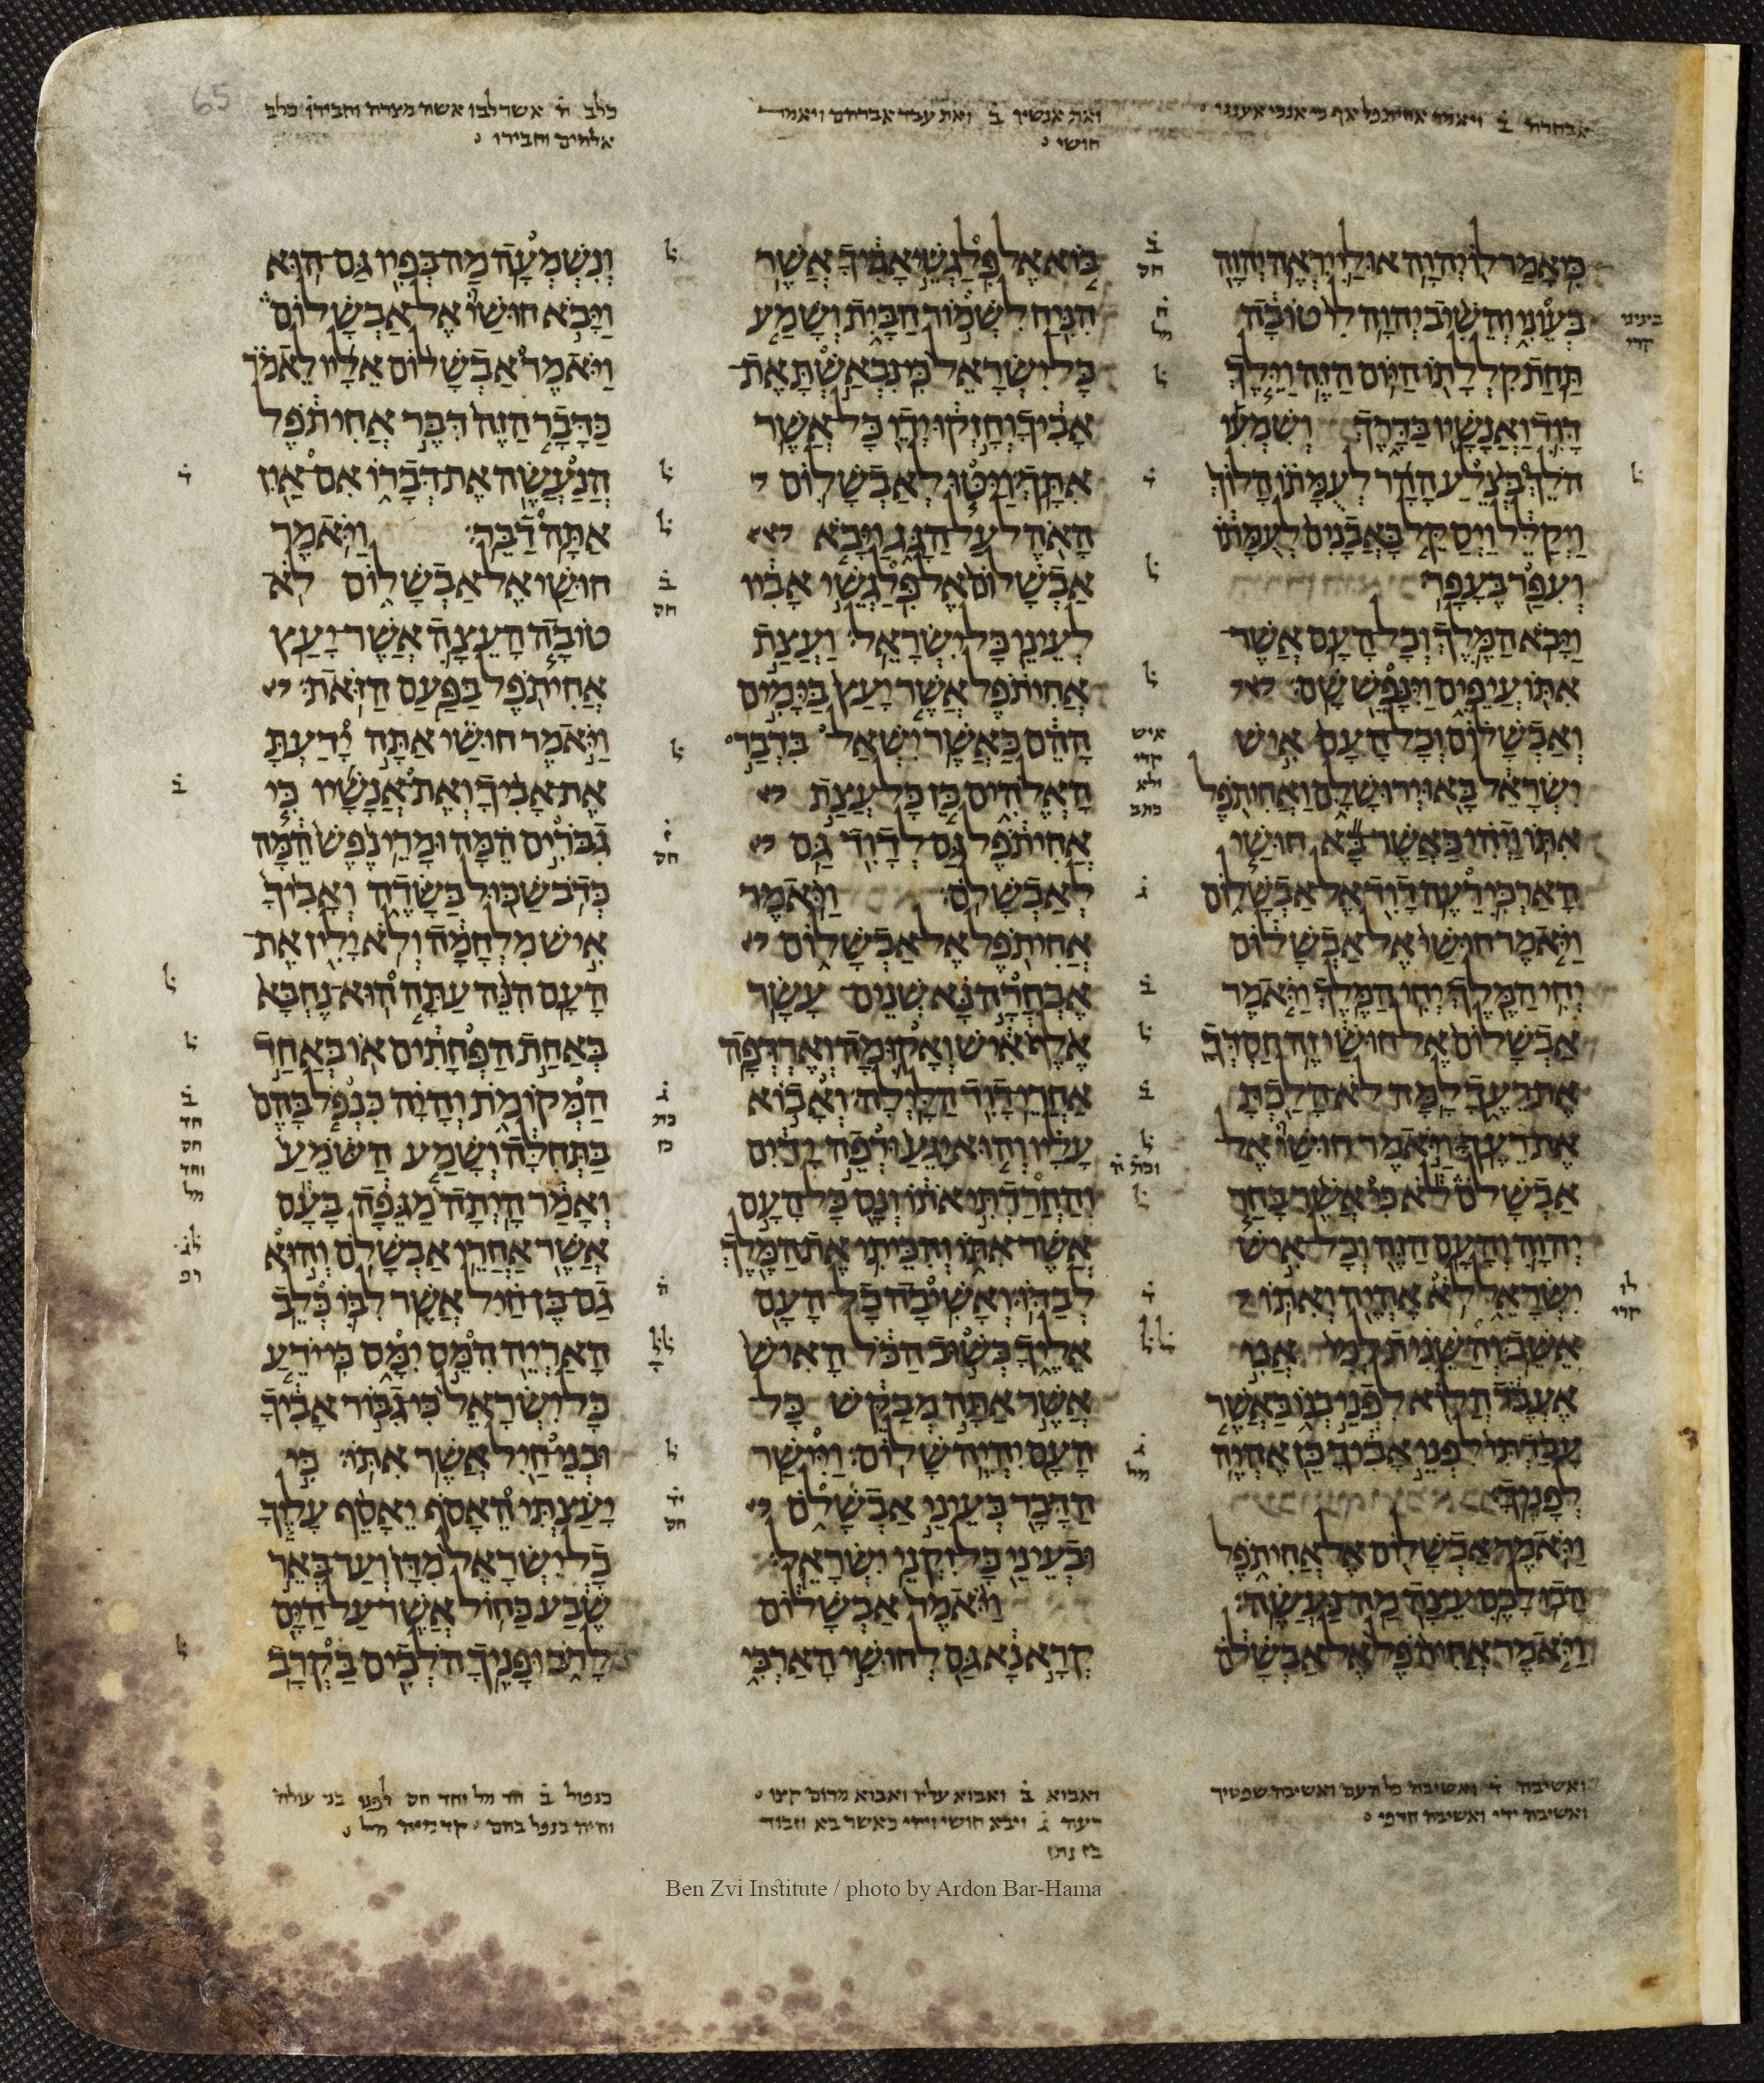 אבחרה ב̇ ויאמר אחיתפל אף כי אנכי אעננו
ואת אנשיו ב̇ ואת עבד אברהם ויאמר
חושי
כלב ח̇ אשר לבו אשה מצרה וחבירו כלב
אלהים וחבירו
כי אמר לו יהוה אולי יראה יהוה
בעוני והשיב יהוה לי טובה
תחת קללתו היום הזה וילך
דוד ואנשיו בדרך ושמעי
הלך בצלע ההר לעמתו הלוך
ויקלל ויסקל באבנים לעמתו
ועפר בעפר׃
ויבא המלך וכל העם אשר
אתו עיפים וינפש שם׃
ואבשלום וכל העם איש
ישראל באו ירושלם ואחיתפל
אתו ויהי כאשר בא חושי
הארכי רעה דוד אל אבשלום
ויאמר חושי אל אבשלום
יחי המלך יחי המלך ויאמר
אבשלום אל חושי זה חסדך
את רעך למה לא הלכת
את רעך׃ ויאמר חושי אל
אבשלם לא כי אשר בחר
יהוה והעם הזה וכל איש
ישראל לא אהיה ואתו
אשב והשנית למי אני
אעבד הלוא לפני בנו כאשר
עבדתי לפני אביך כן אהיה
לפניך׃
ויאמר אבשלום אל אחיתפל
הבו לכם עצה מה נעשה׃
ויאמר אחיתפל אל אבשלם
בוא אל פלגשי אביך אשר
הניח לשמור הבית ושמע
כל ישראל כי נבאשת את
אביך וחזקו ידי כל אשר
אתך׃ ויטו לאבשלום
האהל על הגג ויבא
אבשלום אל פלגשי אביו
לעיני כל ישראל׃ ועצת
אחיתפל אשר יעץ בימים
ההם כאשר ישאל בדבר
האלהים כן כל עצת
אחיתפל גם לדוד גם
לאבשלם׃ ויאמר
אחיתפל אל אבשלום
אבחרה נא שנים עשר
אלף איש ואקומה וארדפה
אחרי דוד הלילה׃ ואבוא
עליו והוא יגע ורפה ידים
והחרדתי אתו ונס כל העם
אשר אתו והכיתי את המלך
לבדו׃ ואשיבה כל העם
אליך כשוב הכל האיש
אשר אתה מבקש כל
העם יהיה שלום׃ ויישר
הדבר בעיני אבשלם
ובעיני כל זקני ישראל׃
ויאמר אבשלום
קרא נא גם לחושי הארכי
ונשמעה מה בפיו גם הוא׃
ויבא חושי אל אבשלום
ויאמר אבשלום אליו לאמר
כדבר הזה דבר אחיתפל
הנעשה את דברו אם אין
אתה דבר׃ ויאמר
חושי אל אבשלום לא
טובה העצה אשר יעץ
אחיתפל בפעם הזאת׃
ויאמר חושי אתה ידעת
את אביך ואת אנשיו כי
גברים המה ומרי נפש המה
כדב שכול בשדה ואביך
איש מלחמה ולא ילין את
העם׃ הנה עתה הוא נחבא
באחת הפחתים או באחד
המקומת והיה כנפל בהם
בתחלה ושמע השמע
ואמר היתה מגפה בעם
אשר אחרי אבשלם׃ והוא
גם בן חיל אשר לבו כלב
האריה המס ימס כי ידע
כל ישראל כי גבור אביך
ובני חיל אשר אתו׃ כי
יעצתי האסף יאסף עליך
כל ישראל מדן ועד באר
שבע כחול אשר על הים
לרב ופניך הלכים בקרב׃
ואשיבה ד̇ ואשיבה כל העם ואשיבה שפטיך
ואשיבה ידי ואשיבה חרפי
ואבוא ב̇ ואבוא עליו ואבוא מרום קצו
רעה ג̇ ויבא חושי ויהי כאשר בא וזבוד
בן נתן
כנפול ב̇ חד מל וחד חס לפני בני עולה
והיה כנפל בהם קדמיה מל
Ben Zvi Institute / photo by Ardon Bar-Hama